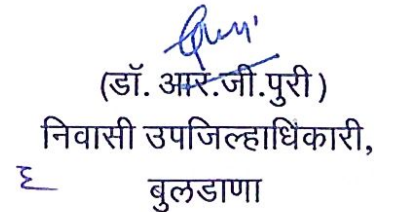 (डॉ. आर.जी.पुरी)
निवासी उपजिल्हाधिकारी,
बुलडाणा